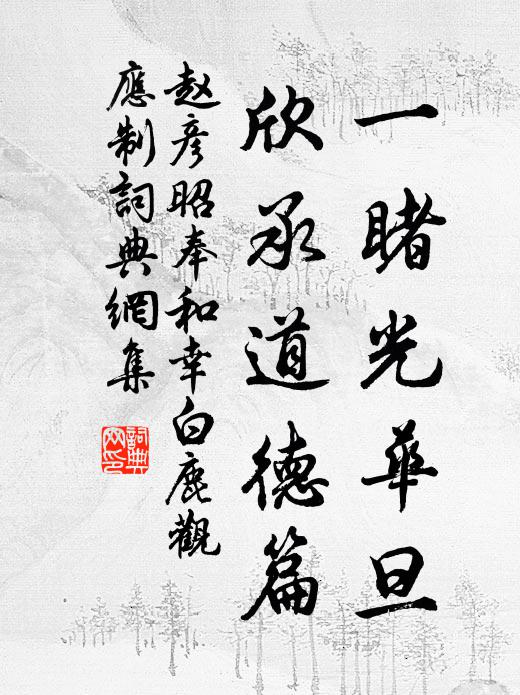 一睹光華旦
欣承道德篇
赵彦昭奉和幸白鹿觀
應制詞典網集
詞典网印